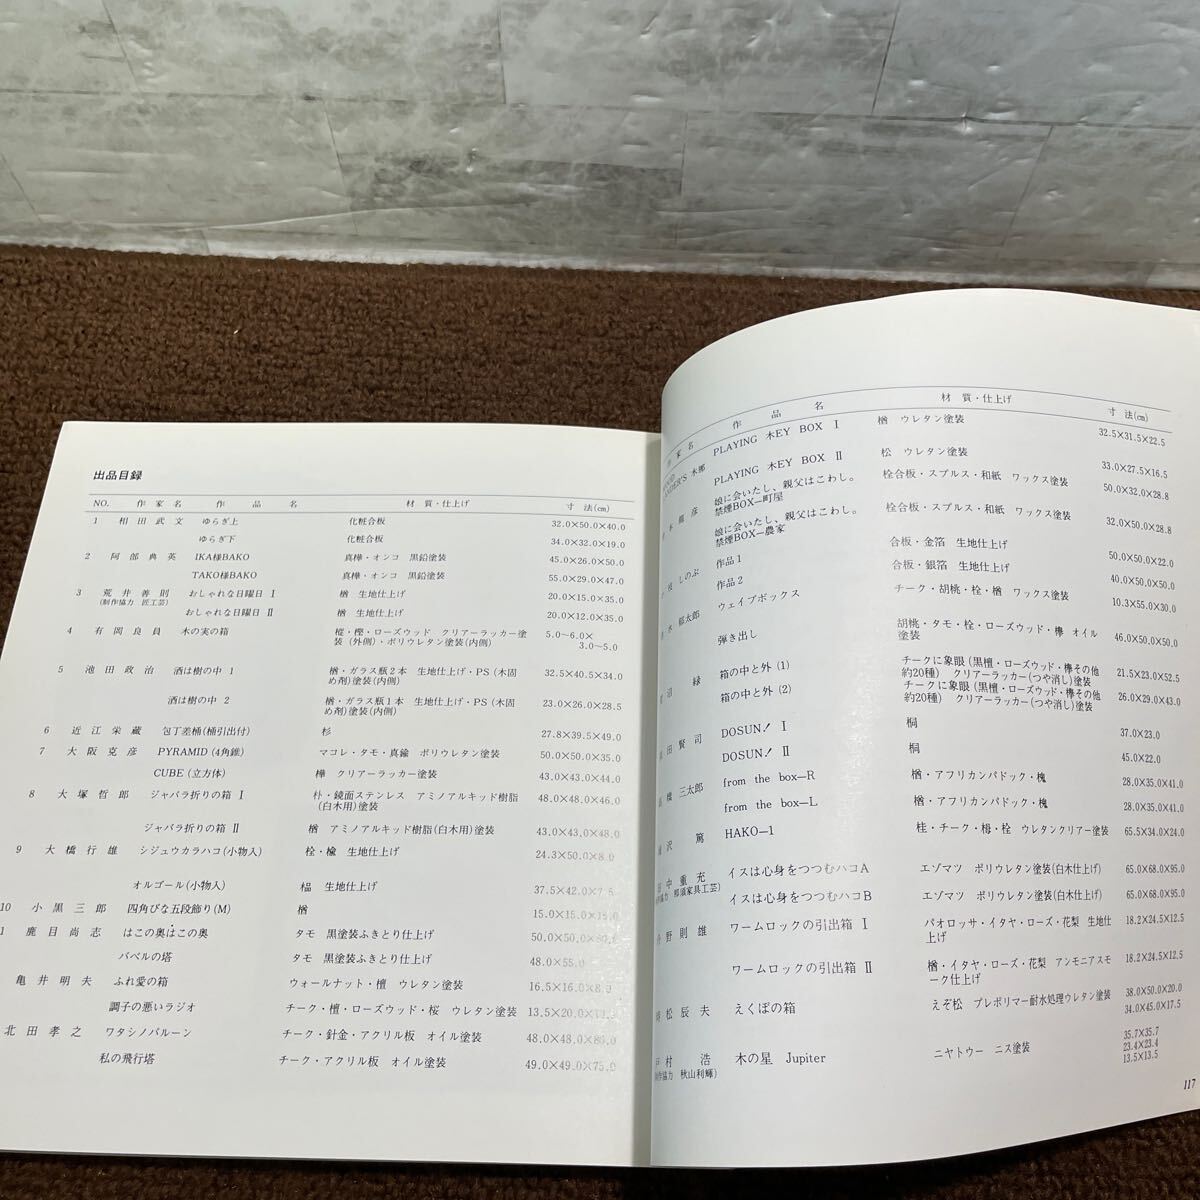 出品目録
NO. 作家名 作品名 材質・仕上げ 寸法(㎝)
1 相田武文 ゆらぎ上 化粧合板 32.0×50.0×40.0
ゆらぎ下 化粧合板 34.0×32.0×19.0
2 阿部典英 IKA様BAKO 真樺・オンコ 黒鉛塗装 45.0×26.0×50.0
TAKO様BAKO 真樺・オンコ 黒鉛塗装 55.0×29.0×47.0
3 荒井善則 おしゃれな日曜日 Ⅰ 楢 生地仕上げ 20.0×15.0×35.0
(制作協力 匠工芸)
おしゃれな日曜日 Ⅱ 楢 生地仕上げ 20.0×12.0×35.0
4 有岡良員 木の実の箱 樅・樫・ローズウッド クリアーラッカー塗 5.0〜6.0×
装(外側)・ポリウレタン塗装(内側) 3.0〜5.0
5 池田政治 酒は樹の中 1 楢・ガラス瓶2本 生地仕上げ・PS(木固 32.5×40.5×34.0
め剤)塗装(内側)
酒は樹の中 2 楢・ガラス瓶1本 生地仕上げ・PS(木固 23.0×26.0×28.5
め剤)塗装(内側)
6 近江栄蔵 包丁差桶(桶引出付) 杉 27.8×39.5×49.0
7 大阪克彦 PYRAMID(4角錐) マコレ・タモ・真鍮 ポリウレタン塗装 50.0×50.0×35.0
CUBE(立方体) 樺 クリアーラッカー塗装 43.0×43.0×44.0
8 大塚哲郎 ジャバラ折りの箱 Ⅰ 朴・鏡面ステンレス アミノアルキッド樹脂 48.0×48.0×46.0
(白木用)塗装
ジャバラ折りの箱 Ⅱ 楢 アミノアルキッド樹脂(白木用)塗装 43.0×43.0×48.0
9 大橋行雄 シジュウカラハコ(小物入) 栓・楡 生地仕上げ 24.3×50.0×8.0
オルゴール(小物入) 生地仕上げ 37.5×42.0×7.5
10 小黒三郎 四角びな五段飾り(M) 楢 15.0×15.0×15.0
1 鹿目尚志 はこの奥はこの奥 タモ 黒塗装ふきとり仕上げ 50.0×50.0×60.0
バベルの塔 タモ 黒塗装ふきとり仕上げ 48.0×55.0
亀井明夫 ふれ愛の箱 ウォールナット・檀 ウレタン塗装 16.5×16.0×8.0
調子の悪いラジオ チーク・檀・ローズウッド・桜 ウレタン塗装 13.5×20.0×
北田孝之 ワタシノバルーン チーク・針金・アクリル板 オイル塗装 48.0×48.0×80.0
私の飛行塔 チーク・アクリル板 オイル塗装 49.0×49.0×75.0
作家名 作品名 材質・仕上げ 寸法(㎝)
木郷 PLAYING 木EY BOX Ⅰ 楢 ウレタン塗装 32.5×31.5×22.5
PLAYING 木EY BOX Ⅱ 松 ウレタン塗装 33.0×27.5×16.5
彦 娘に会いたし、親父はこわし。 栓合板・スプルス・和紙 ワックス塗装 50.0×32.0×28.8
禁煙BOX—町屋
娘に会いたし、親父はこわし。 栓合板・スプルス・和紙 ワックス塗装 32.0×50.0×28.8
禁煙BOX—農家
しのぶ 作品1 合板・金箔 生地仕上げ 50.0×50.0×22.0
作品2 合板・銀箔 生地仕上げ 40.0×50.0×50.0
水郁太郎 ウェイブボックス チーク・胡桃・栓・楢 ワックス塗装 10.3×55.0×30.0
弾き出し 胡桃・タモ・栓・ローズウッド・欅 オイル 46.0×50.0×50.0
塗装
沼緑 箱の中と外(1) チークに象眼(黒檀・ローズウッド・欅その他 21.5×23.0×52.5
約20種) クリアーラッカー(つや消し)塗装
箱の中と外(2) チークに象眼(黒檀・ローズウッド・欅その他 26.0×29.0×43.0
約20種) クリアーラッカー(つや消し)塗装
田賢司 DOSUN! Ⅰ 桐 37.0×23.0
DOSUN! Ⅱ 桐 45.0×22.0
高橋三太郎 from the box—R 楢・アフリカンパドック・槐 28.0×35.0×41.0
from the box—L 楢・アフリカンパドック・槐 28.0×35.0×41.0
沢篤 HAKO—1 桂・チーク・栂・栓 ウレタンクリアー塗装 65.5×34.0×24.0
田中重充 イスは心身をつつむハコA エゾマツ ポリウレタン塗装(白木仕上げ) 65.0×68.0×95.0
(制作協力 那須家具工芸)
イスは心身をつつむハコB エゾマツ ポリウレタン塗装(白木仕上げ) 65.0×68.0×95.0
丹野則雄 ワームロックの引出箱 Ⅰ パオロッサ・イタヤ・ローズ・花梨 生地仕 18.2×24.5×12.5
上げ
ワームロックの引出箱 Ⅱ 楢・イタヤ・ローズ・花梨 アンモニアスモ 18.2×24.5×12.5
ーク仕上げ
時松辰夫 えくぼの箱 えぞ松 プレポリマー耐水処理ウレタン塗装 38.0×50.0×20.0
34.0×45.0×17.5
戸村浩 木の星 Jupiter ニヤトウー ニス塗装 35.7×35.7
(制作協力 秋山利輝) 23.4×23.4
13.5×13.5
117